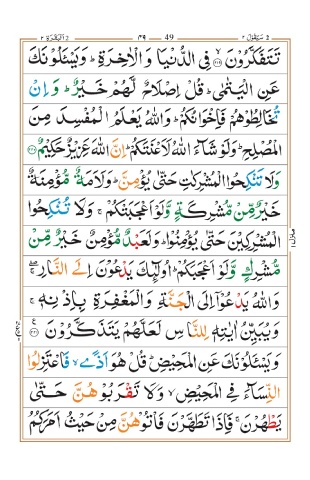 سَيَقُوۡلُ ٢ ٣٩ 49 اَلۡبَقَرَة ٢
تَتَفَكَّرُوۡنَ ۙ‏﴿۲۱۹﴾ فِى الدُّنۡيَا وَالۡاٰخِرَةِ‌ؕ وَيَسۡــَٔلُوۡنَكَ
عَنِ الۡيَتٰمٰىؕ قُلۡ اِصۡلَاحٌ لَّهُمۡ خَيۡرٌؕ وَاِنۡ
تُخَالِطُوۡهُمۡ فَاِخۡوَانُكُمۡؕ وَاللّٰهُ يَعۡلَمُ الۡمُفۡسِدَ مِنَ
الۡمُصۡلِحِؕ وَلَوۡ شَآءَ اللّٰهُ لَاَعۡنَتَكُمۡؕ اِنَّ اللّٰهَ عَزِيۡزٌ حَكِيۡمٌ‏﴿۲۲۰﴾
وَلَا تَنۡكِحُوا الۡمُشۡرِكٰتِ حَتّٰى يُؤۡمِنَّؕ وَلَاَمَةٌ مُّؤۡمِنَةٌ
خَيۡرٌ مِّنۡ مُّشۡرِكَةٍ وَّلَوۡ اَعۡجَبَتۡكُمۡۚ وَلَا تُنۡكِحُوا
الۡمُشۡرِكِيۡنَ حَتّٰى يُؤۡمِنُوۡاؕ وَلَعَبۡدٌ مُّؤۡمِنٌ خَيۡرٌ مِّنۡ
مُّشۡرِكٍ وَّلَوۡ اَعۡجَبَكُمۡؕ اُولٰٓٮِٕكَ يَدۡعُوۡنَ اِلَى النَّارِ ۖۚ
وَاللّٰهُ يَدۡعُوۡٓا اِلَى الۡجَنَّةِ وَالۡمَغۡفِرَةِ بِاِذۡنِهٖۚ
وَيُبَيِّنُ اٰيٰتِهٖ لِلنَّاسِ لَعَلَّهُمۡ يَتَذَكَّرُوۡنَ‏﴿۲۲۱﴾
وَيَسۡــَٔلُوۡنَكَ عَنِ الۡمَحِيۡضِؕ قُلۡ هُوَ اَذًىۙ فَاعۡتَزِلُوا
النِّسَآءَ فِى الۡمَحِيۡضِۙ وَلَا تَقۡرَبُوۡهُنَّ حَتّٰى
يَطۡهُرۡنَۚ فَاِذَا تَطَهَّرۡنَ فَاۡتُوۡهُنَّ مِنۡ حَيۡثُ اَمَرَكُمُ